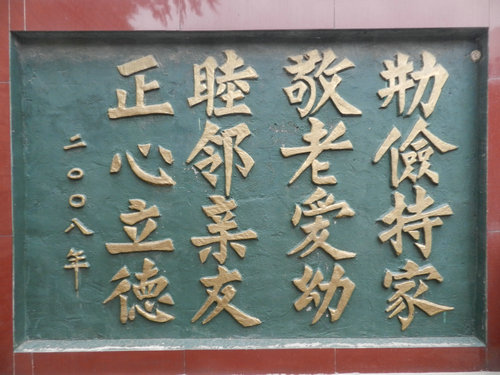 勤儉持家
敬老爱幼
睦邻亲友
正心立德
二〇〇八年